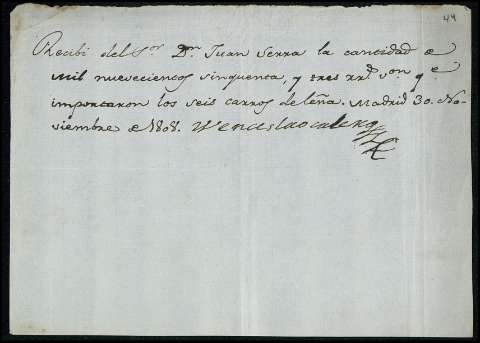 44
Recibi del S.or D.n Juan Serra la cantidad de
Mil nuevecientos sinquenta, y tres rr.s von. q.e
importaron los seis carros de leña. Madrid 30. No-
viembre de 1808. Wenceslao Calero